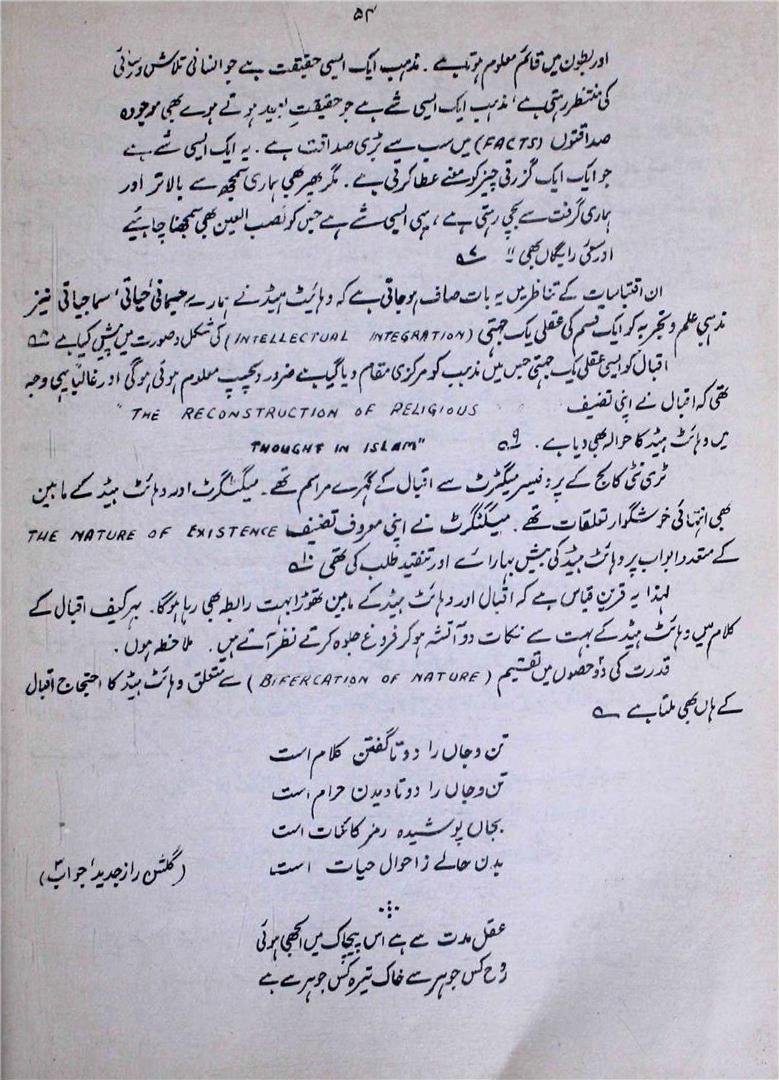 ۵۴
اور بطون میں قائم معلوم ہوتا ہے ۔ مذہب ایک ایسی حقیقت ہے جو انسانی تلاش و رسائی
کی منتظر رہتی ہے ، مذہب ایک ایسی شے ہے جو حقیقتِ بعید ہوتے ہوے بھی موجودہ
صداقتوں (FACTS) میں سب سے بڑی صداقت ہے ۔ یہ ایک ایسی شے ہے
جو ایک ایک گزرتی چیز کو معنے عطا کرتی ہے ۔ مگر پھر بھی ہماری سمجھ سے بالا تر اور
ہماری گرفت سے بچی رہتی ہے ، یہی ایسی شے ہے جس کو نصب العین بھی سمجھنا چاہئیے
اور سعئی رایگاں بھی "
ان اقتباسات کے تناظر میں یہ بات صاف ہو جاتی ہے کہ وہائٹ ہیڈ نے ہمارے جسمانی ، حیاتی ، سماجیاتی نیز
مذہبی علم و تجربہ کو ایک قسم کی عقلی یک جہتی (INTELLECTUAL INTEGRATION) کی شکل و صورت میں پیش کیا ہے ۸
اقبال کو ایسی عقلی یک جہتی جس میں مذہب کو مرکزی مقام دیا گیا ہے ضرور دلچسپ معلوم ہوئی ہوگی اور غالباً یہی وجہ
تھی کہ اقبال نے اپنی تصنیف "THE RECONSTRUCTION OF RELIGIOUS
THOUGHT IN ISLAM" میں وہائٹ ہیڈ کا حوالہ بھی دیا ہے ۔ ۹
ٹری نٹی کالج کے پروفیسر میگٹرٹ سے اقبال کے گہرے مراسم تھے ۔ میگٹگرٹ اور وہائٹ ہیڈ کے مابین
بھی انتہائی خوشگوار تعلقات تھے ۔ میکٹگرٹ نے اپنی معروف تصنیف THE NATURE OF EXISTENCE
کے متعدد ابواب پر وہائٹ ہیڈ کی بیش بہا رائے اور تنقید طلب کی تھی ۱۰
لہذا یہ قرین قیاس ہے کہ اقبال اور وہائٹ ہیڈ کے مابین تھوڑا بہت رابطہ بھی رہا ہوگا ۔ بہرکیف اقبال کے
کلام میں وہائٹ ہیڈ کے بہت سے نکات دو آتشہ ہو کر فروغ جلوہ کرتے نظر آتے ہیں ۔ ملاحظہ ہوں ۔
قدرت کی دو حصوں میں تقسیم (BIFERCATION OF NATURE) سے متعلق وہائٹ ہیڈ کا احتجاج اقبال
کے ہاں بھی ملتا ہے
تن و جاں را دو تا گفتن کلام است
تن و جاں را دو تا دیدن حرام است
بجاں پوشیدہ رمز کائنات است
بدن حالے ز احوال حیات است (گلشن راز جدید ، جواب ۳)
عقل مدت سے ہے اس پیچاک میں الجھی ہوئی
روح کس جوہر سے خاک تیرہ کس جوہر سے ہے